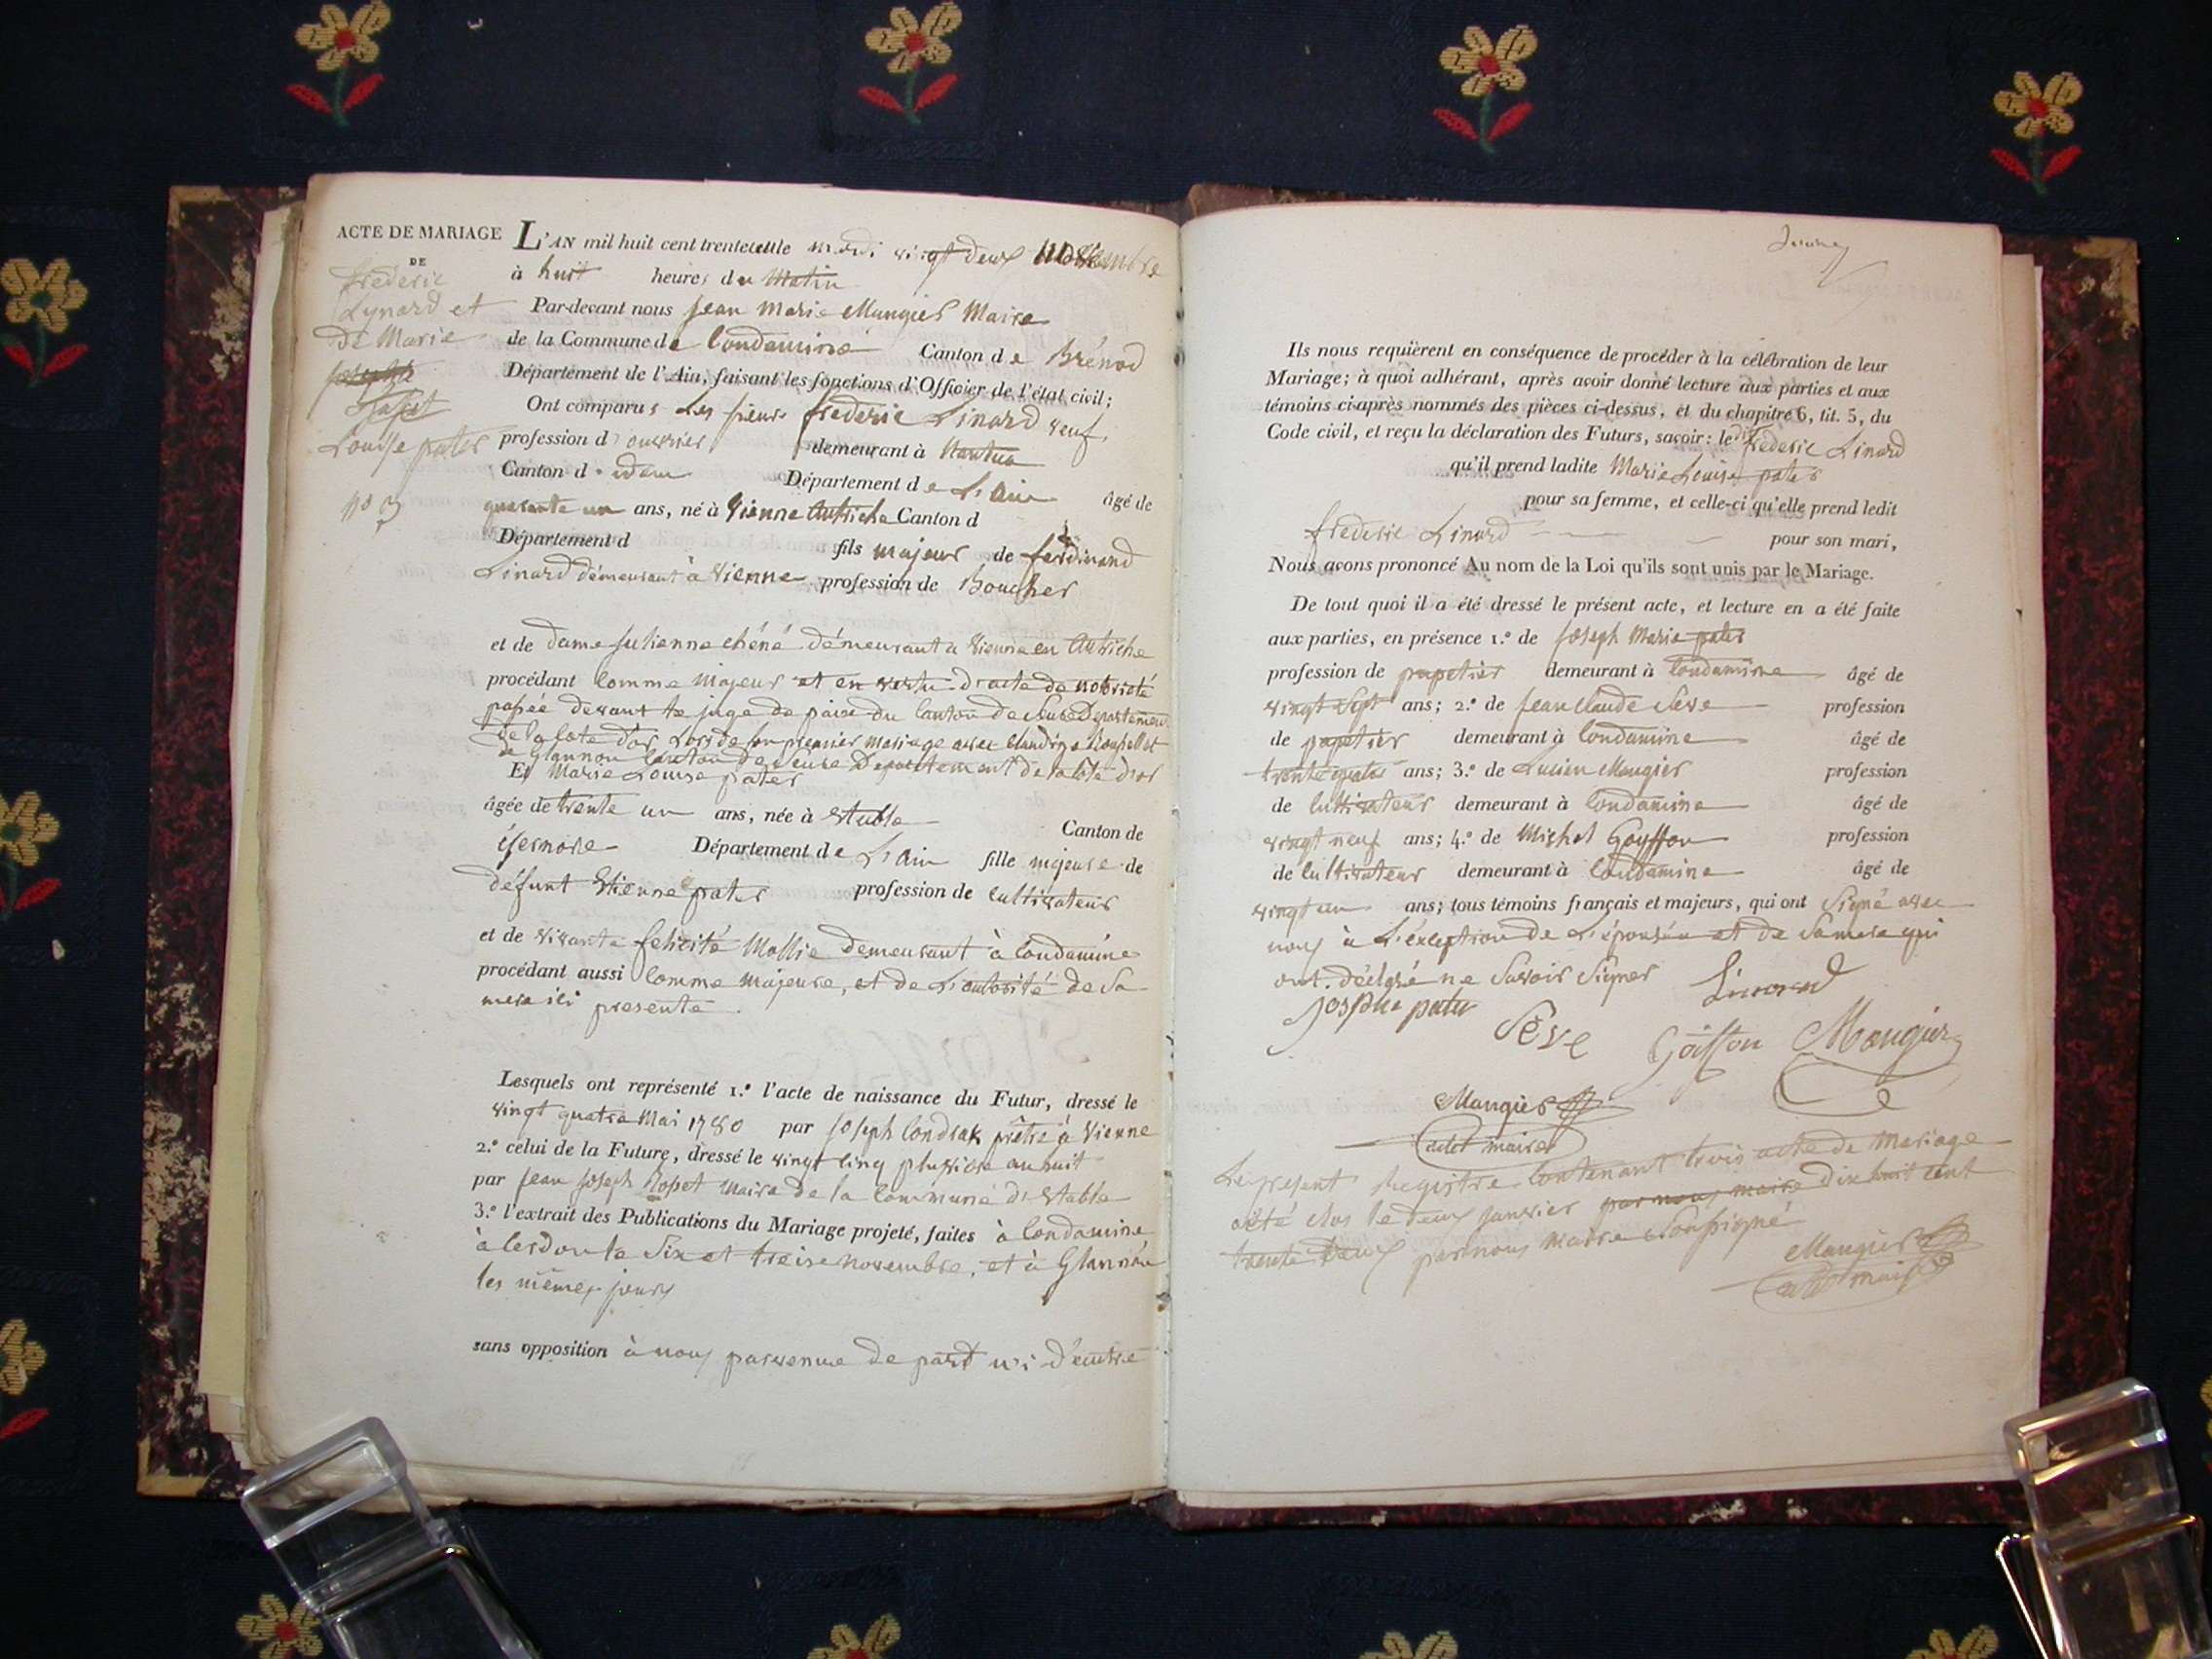 ACTE DE MARIAGE
DE
frederic
Lynard et
de Marie
Louise pater
no 3
L'AN mil huit cent trente mardi vingt deux novembre
à huit heures du Matin
Par-devant nous jean marie Maugier Maire
de la Commune de Condamine Canton de Brénod
Département de l'Ain, faisant les fonctions d'Officier de l'état civil;
Ont comparus Les sieurs frederic Linard veuf,
profession d'ouvrier demeurant à Nantua
Canton d idem Département de L'Ain âgé de
quarante un ans, né à Vienne Autriche Canton d
Département d fils majeur de ferdinand
Linard démeurant à Vienne profession de Boucher
et de dame julienne chéné démeurant a Vienne en Autriche
procédant Comme majeur et en vertu d'acte de notorieté
passée devant le juge de paix du Canton de Seure Departement
de la Cote d'or Lors de son premier mariage avec
de Glannon Canton de Seure Departement de la Cote d'or
Et Marie Louise pater
âgée de trente un ans, née à Etable Canton de
Département de L'Ain fille majeure de
défunt Etienne pater profession de Cultivateur
et de vivante felicité Mollie demeurant à Condamine
procédant aussi Comme majeure, et de L'autorité de Sa
mere ici presente
Lesquels ont représenté 1.º l'acte de naissance du Futur, dressé le
vingt quatre Mai 1780 par joseph Condrak prêtre à Vienne
2.º celui de la Future, dressé le vingt cinq pluviose an huit
par jean joseph Rosset maire de la Commune d'Etable
3.º l'extrait des Publications du Mariage projeté, faites à Condamine
à Cerdon le Six et treise novembre, et à Glannon
les mêmes jours
sans opposition à nous parvenue de part ni d'autre
Ils nous requièrent en conséquence de procéder à la célébration de leur
Mariage; à quoi adhérant, après avoir donné lecture aux parties et aux
témoins ci-après nommés des pièces ci-dessus, et du chapitre 6, tit. 5, du
Code civil, et reçu la déclaration des Futurs, savoir: le dit frederic Linard
qu'il prend ladite Marie Louise pater
pour sa femme, et celle-ci qu'elle prend ledit
frederic Linard pour son mari,
Nous avons prononcé Au nom de la Loi qu'ils sont unis par le Mariage.
De tout quoi il a été dressé le présent acte, et lecture en a été faite
aux parties, en présence 1.º de joseph Marie pater
profession de papetier demeurant à Condamine âgé de
vingt Sept ans; 2.º de jean Claude Seve profession
de papetier demeurant à Condamine âgé de
trente quatre ans; 3.º de Lucien Maugier profession
de Cultivateur demeurant à Condamine âgé de
vingt neuf ans; 4.º de Michel Goyffon profession
de Cultivateur demeurant à Condamine âgé de
vingt un ans; tous témoins français et majeurs, qui ont Signé avec
nous à L'éxéption de L'épousée et de Sa mere qui
ont déclaré ne Savoir Signer Linard
josphe pater Séve Goiffon Maugier
Maugier
adet maire
Le present Registre Contenant trois acte de Mariage
a été clos le deux janvier par nous maire dix huit cent
trente deux par nous maire Soussigné
Maugier